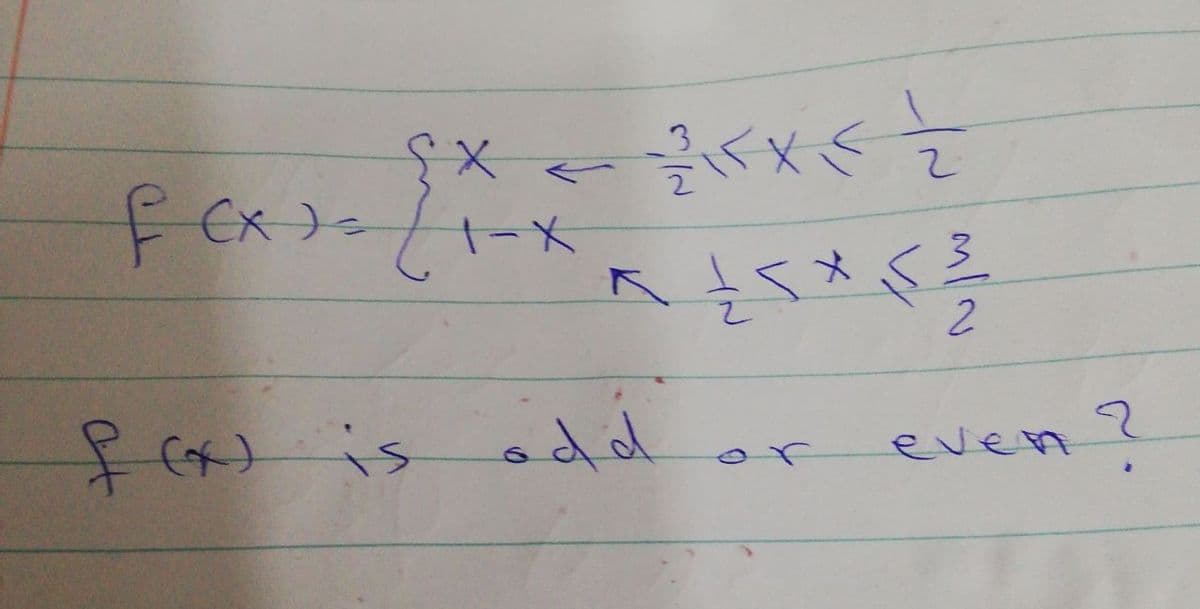 f(x) = { x ← -3/2 ≤ x ≤ 1/2
1-x ↖ 1/2 ≤ x ≤ 3/2
f(x) is odd or even?